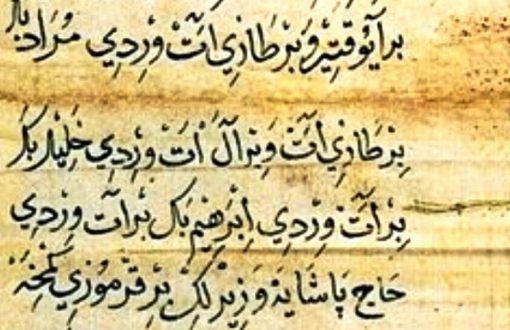 بر آيوقتير وبر طازي اَتْ وِرْدِي مُرَاد
بِرْ طَازِي اَتْ وَبِرْ آلْ اَتْ وِرْدِي خَلِيلْ بَكْ
بِرْ اَتْ وِرْدِي اِبْرَهِيمْ بَكْ بِرْ اَتْ وِرْدِي
حَاجْ پَاشَايَهْ وَزِيرْلِكْ بِرْ قِرْمُزِي كَمْخَهْ